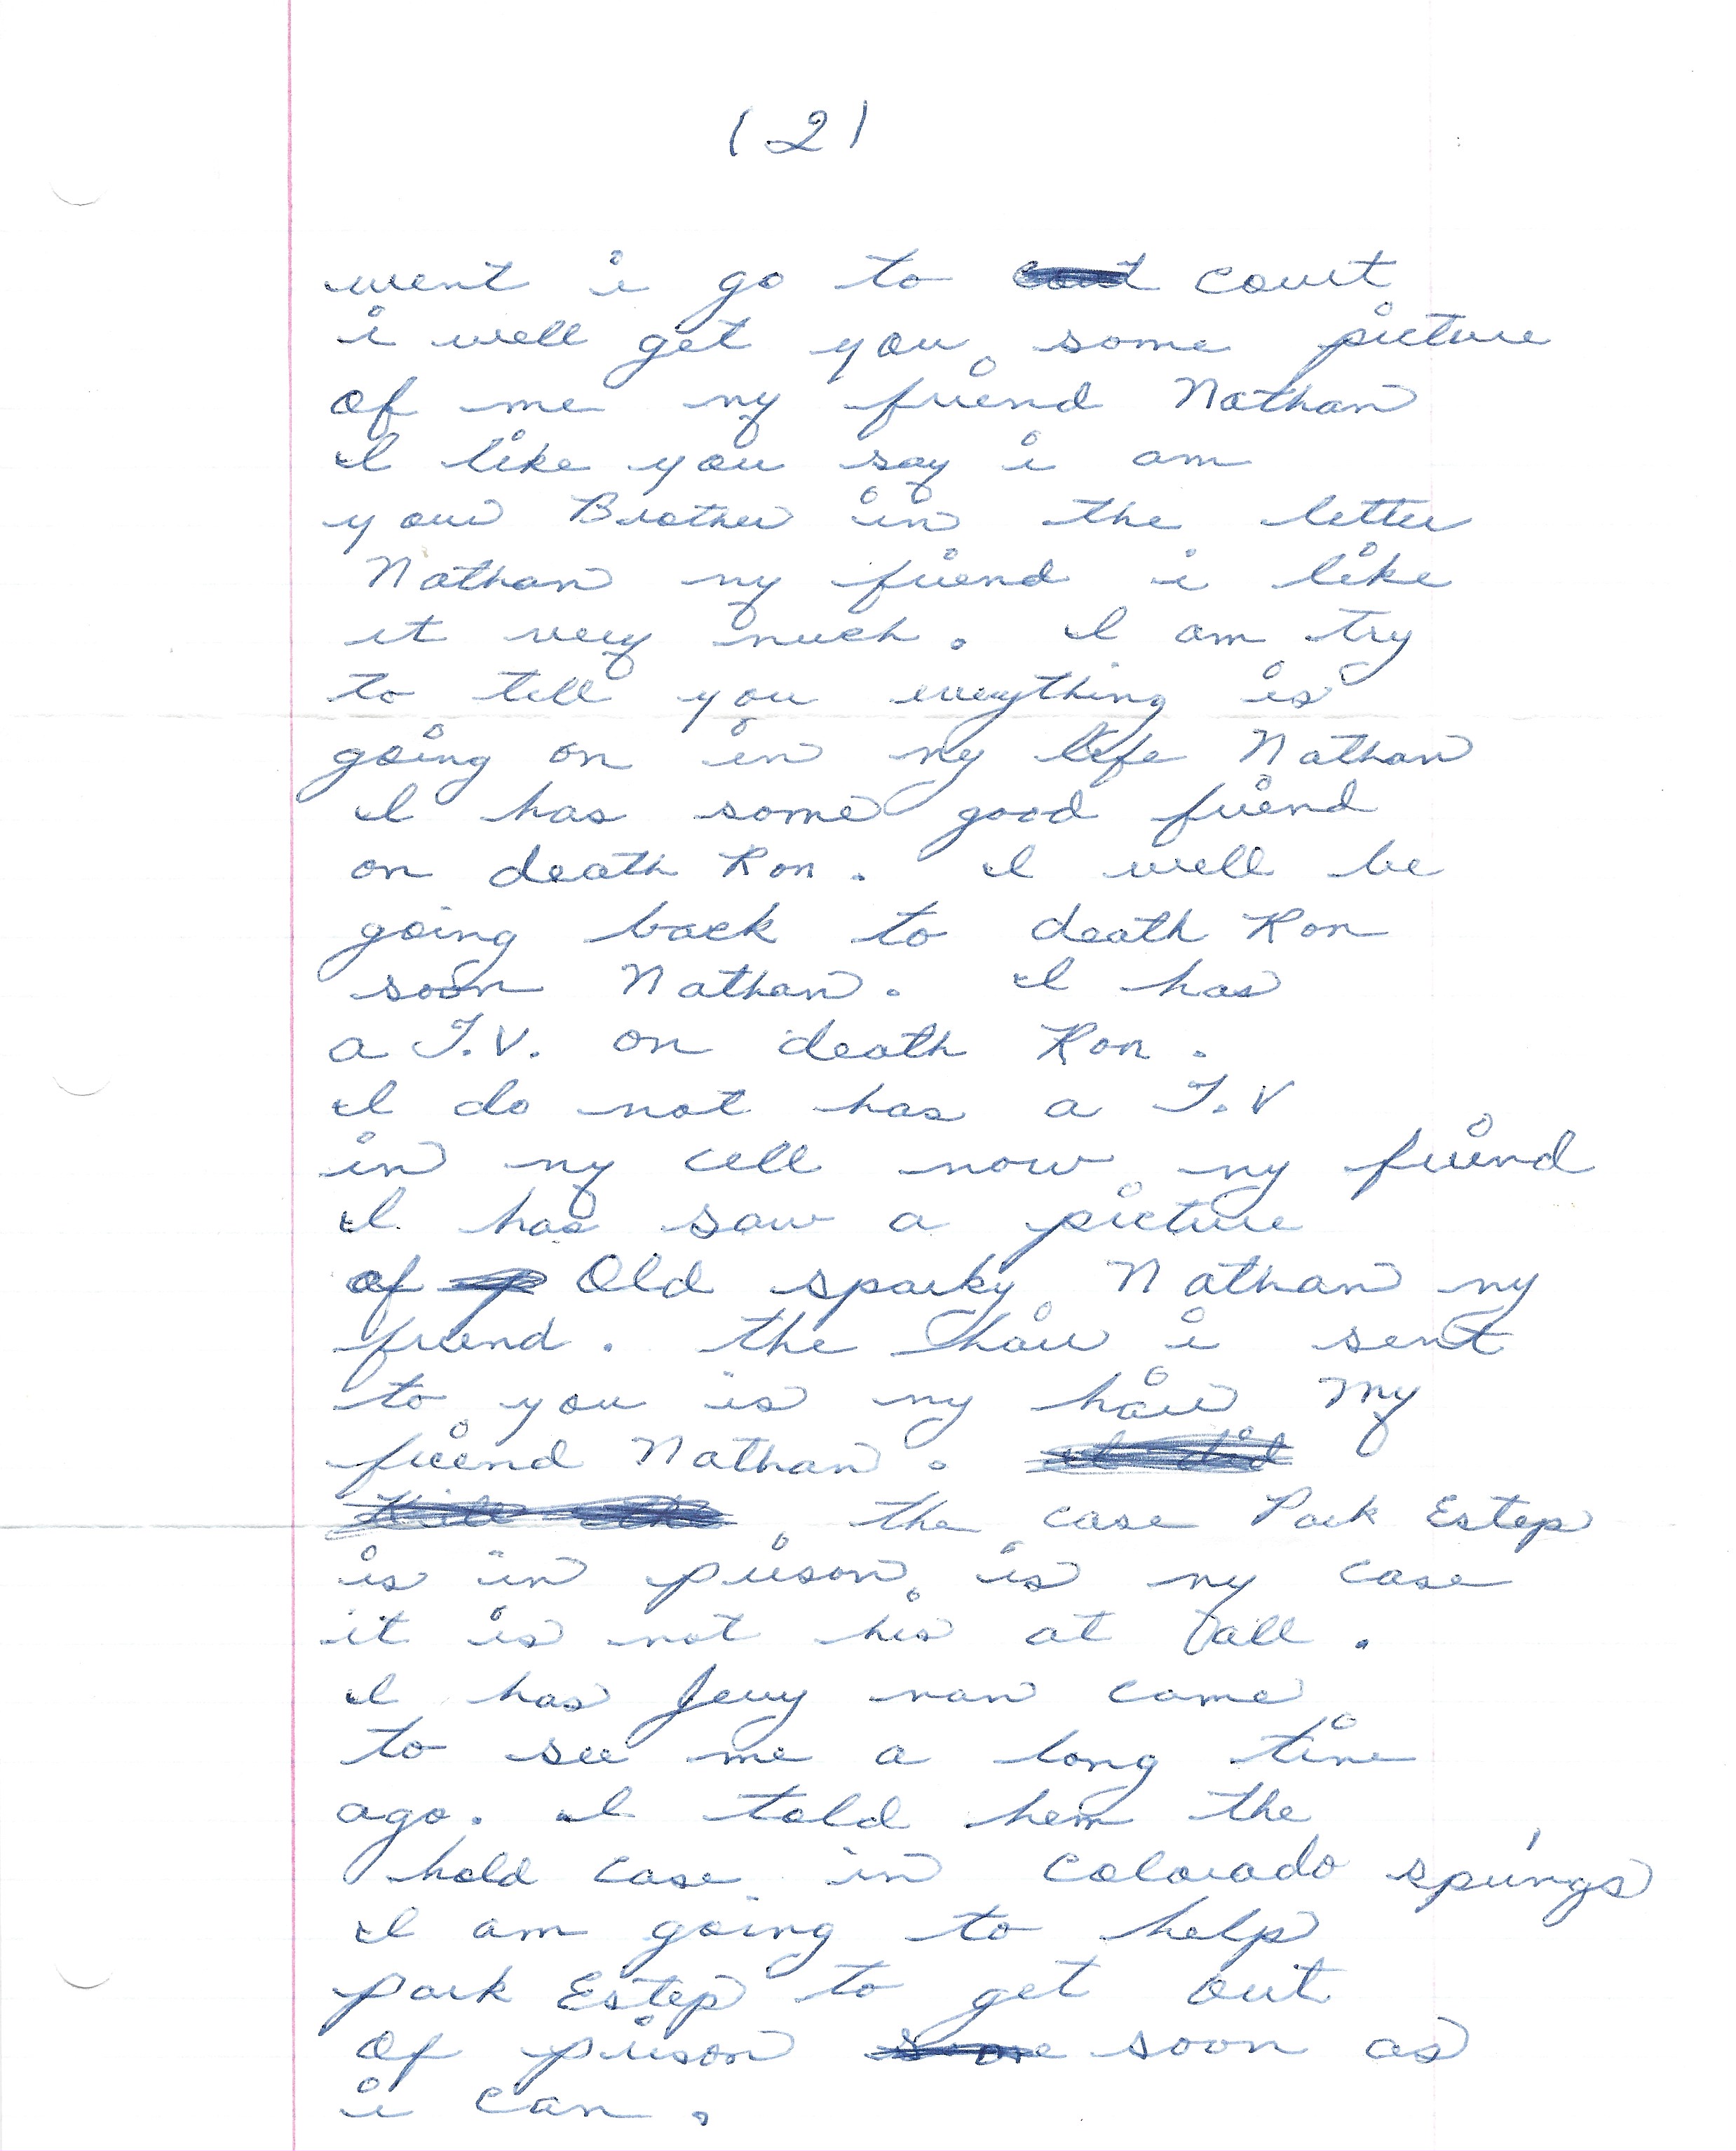 (2)
went i go to court
i well get you some picture
of me ny friend Nathan
I like you say i am
your Brother in the letter
Nathan ny friend i like
it very nuch. I am try
to tell you everything is
going on in ny life Nathan
I has some good friend
on death Ron. I well be
going back to death Ron
soon Nathan. I has
a T.V. on death Ron.
I do not has a T.V
in ny cell now ny friend
I has saw a picture
of Old sparky Nathan ny
friend. the hair i sent
to you is ny hair My
friend Nathan.
the case Park Estep
is in prison. is ny case
it is not his at all.
I has Jerry nan came
to see me a long tine
ago. I told hem the
hold case in Colorado springs
I am going to help
park Estep to get out
Of prison soon as
i can.